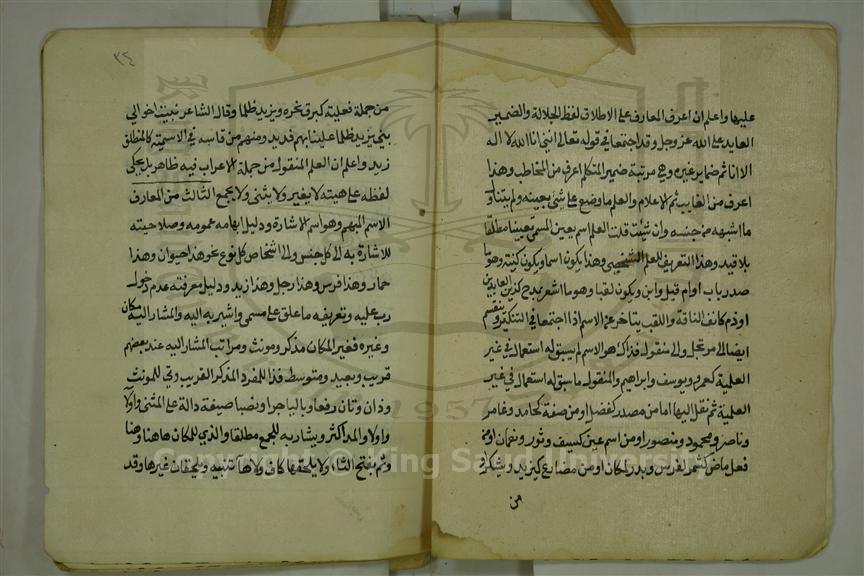 عليها واعلم ان اعرف المعارف على الاطلاق لفظ الجلالة والضمير
العايد على الله عز وجل وقد اجتمعا في قوله تعالى انني انا الله لا اله
الا انا ثم ضمايرغيره وهي مرتبة ضمير المتكلم اعرف من المخاطب وهذا
اعرف من الغايب ثم الاعلام والعلم ما وضع على شي بعينه ولم يتناول
ما اشبهه من جنسه وان شيت قلت العلم اسم يعين المسمى تعيينا مطلقا
بلا قيد وهذا التعريف للعلم الشخصي وهذا يكون اسما ويكون كنية وهو ما
صدر باب او ام قبل وابن ويكون لقبا وهو ما اشعر بمدح كزين العابدين
او ذم كانف الناقة واللقب يتاخر عن الاسم اذا اجتمعا في التنكير وينقسم
ايضا الى مرتجل والى منقول فذاك هو الاسم لم يسبق له استعمال في غير
العلمية كعمر ويوسف وابراهيم والمنقول ما سبق له استعمال في غير
العلمية ثم نقل اليها اما من مصدر كفضل او من صفة كحامد وعامر
وناصر ومحمود ومنصور او من اسم عين كسيف وثور ونعمان او من
فعل ماض كشمر لفرس وبدر لمكان او من مضارع كيزيد ويشكر او
من
٣٤
من جملة فعلية كبرق نحره ويزيد ظلما وقال الشاعر نبيت اخوالي
بني يزيد ظلما علينا لهم فديد ومنهم من قاسه في الاسمية كالمنطلق
زيد واعلم ان العلم المنقول من جملة الاعراب فيه ظاهر بل يحكى
لفظه على هيته لا يغير ولا يثنى ولا يجمع الثالث من المعارف
الاسم المبهم وهو اسم الاشارة ودليل ابهامه عمومه وصلاحيته
للاشارة به الى كل جنس والى اشخاص كل نوع نحو هذا حيوان وهذا
حمار وهذا فرس وهذا رجل وهذا زيد ودليل معرفته عدم دخول
رب عليه وتعريفه ما علق على مسمى واشير به اليه والمشار اليه مكان
وغيره فغير المكان مذكر ومونث ومراتب المشار اليه عند بعضهم
قريب وبعيد ومتوسط فذا للمفرد المذكر القريب وتي للمونث
وذان وتان رفعا وبالياجرا ونصبا صيغة دالة على المثنى واولا
واولاء والمد اكثر ويشار به للجمع مطلقا والذي للمكان هاهنا وهنا
وثم بفتح الثاء ولا يلحقها كاف ولا ها تنبيه ويلحقان غيرها وقد
Copyright © King Saud University
1957